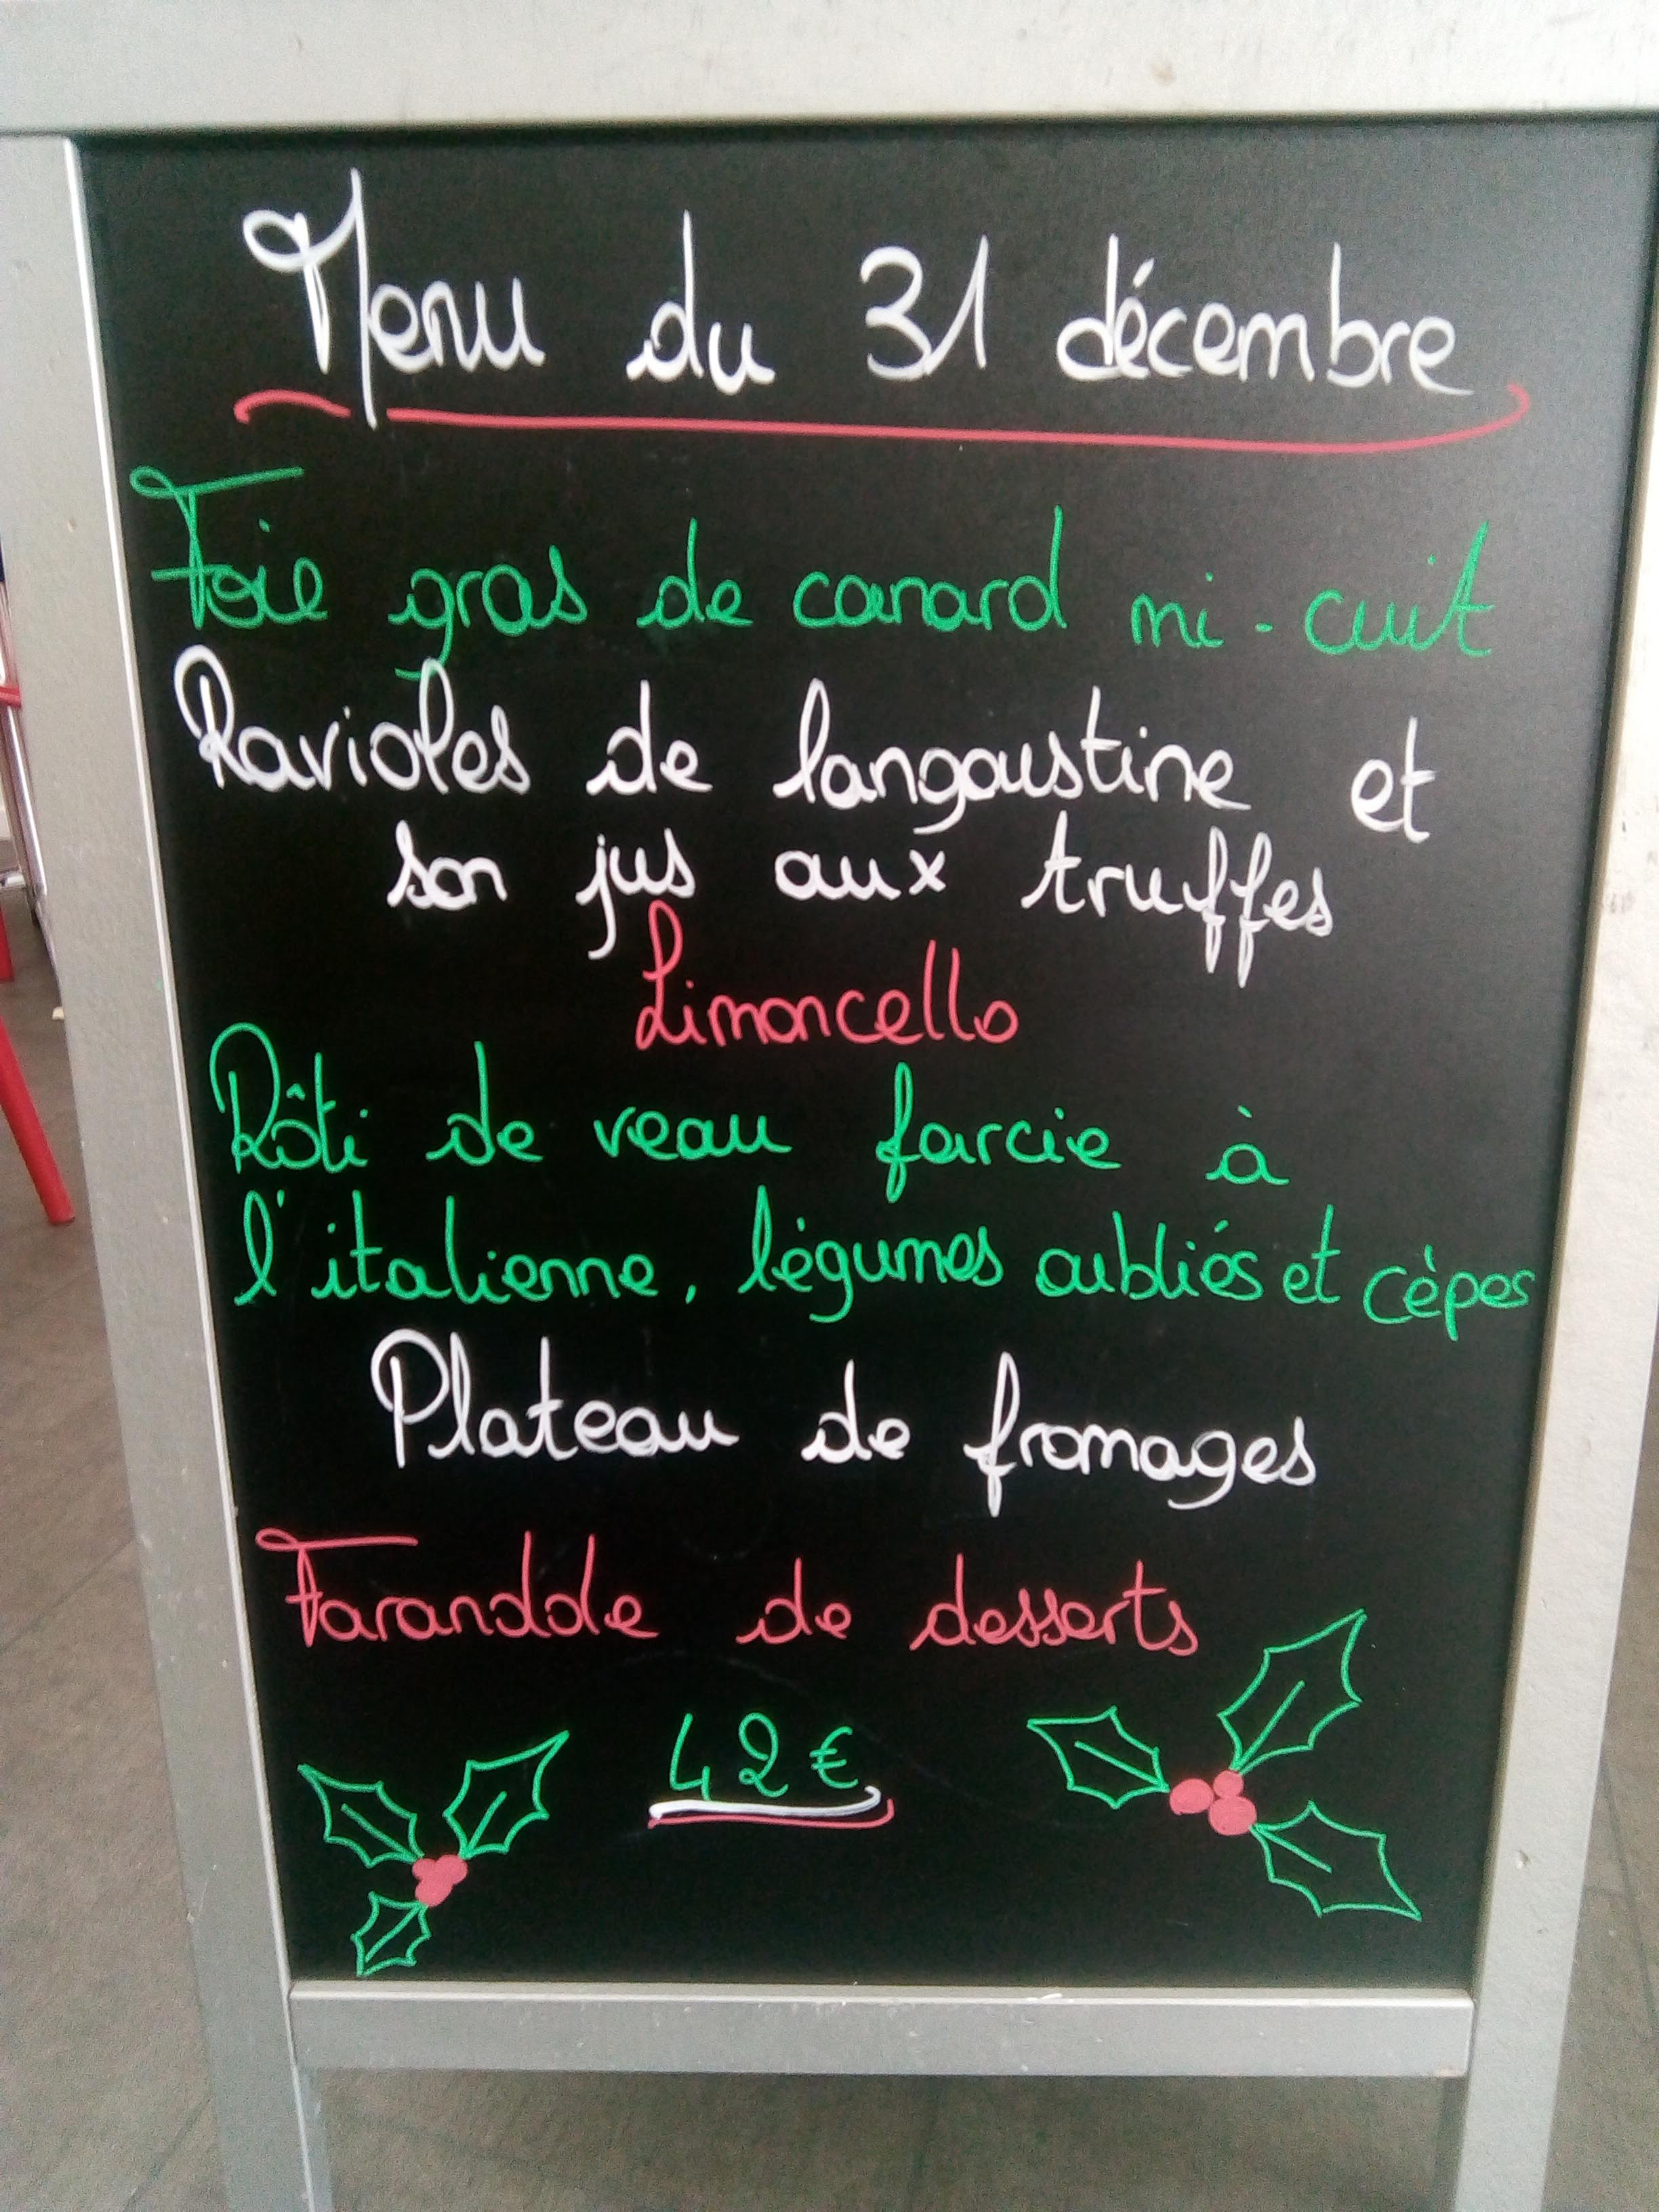 Menu du 31 décembre
Foie gras de canard mi-cuit
Ravioles de langoustine et
son jus aux truffes
Limoncello
Rôti de veau farcie à
l'italienne, légumes oubliés et cèpes
Plateau de fromages
Farandole de desserts
42€